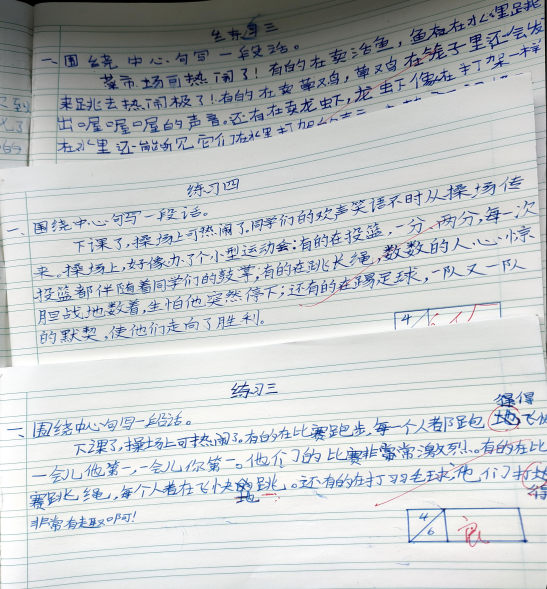 练习三
一、围绕中心句写一段话。
菜市场可热闹了!有的在卖活鱼,鱼在在水里跳
来跳去热闹极了!有的在卖草鸡,草鸡在笼子里还会发
出喔喔喔的声音。还有在卖龙虾,龙虾像在打架一样
在水里还能听见它们在水里打架的声音
练习四
一、围绕中心句写一段话。
下课了,操场上可热闹了。同学们的欢声笑语不时从操场传
来。操场上,好像办了个小型运动会:有的在投篮,一分、两分,每一次
投篮都伴随着同学们的鼓掌;有的在跳长绳,数数的人心惊
胆战地数着,生怕他突然停下;还有的在踢足球,一队又一队
的默契,使他们走向了胜利。
4
练习三
一、围绕中心句写一段话。
得得
下课了,操场上可热闹了。有的在比赛跑步,每一个人都跑地飞快
一会儿他第一,一会儿你第一。他们的比赛非常激烈。有的在比
赛跳长绳,每个人都在飞快地跳。还有的在打羽毛球,他们打地
得
非常有趣啊!
4/6 良